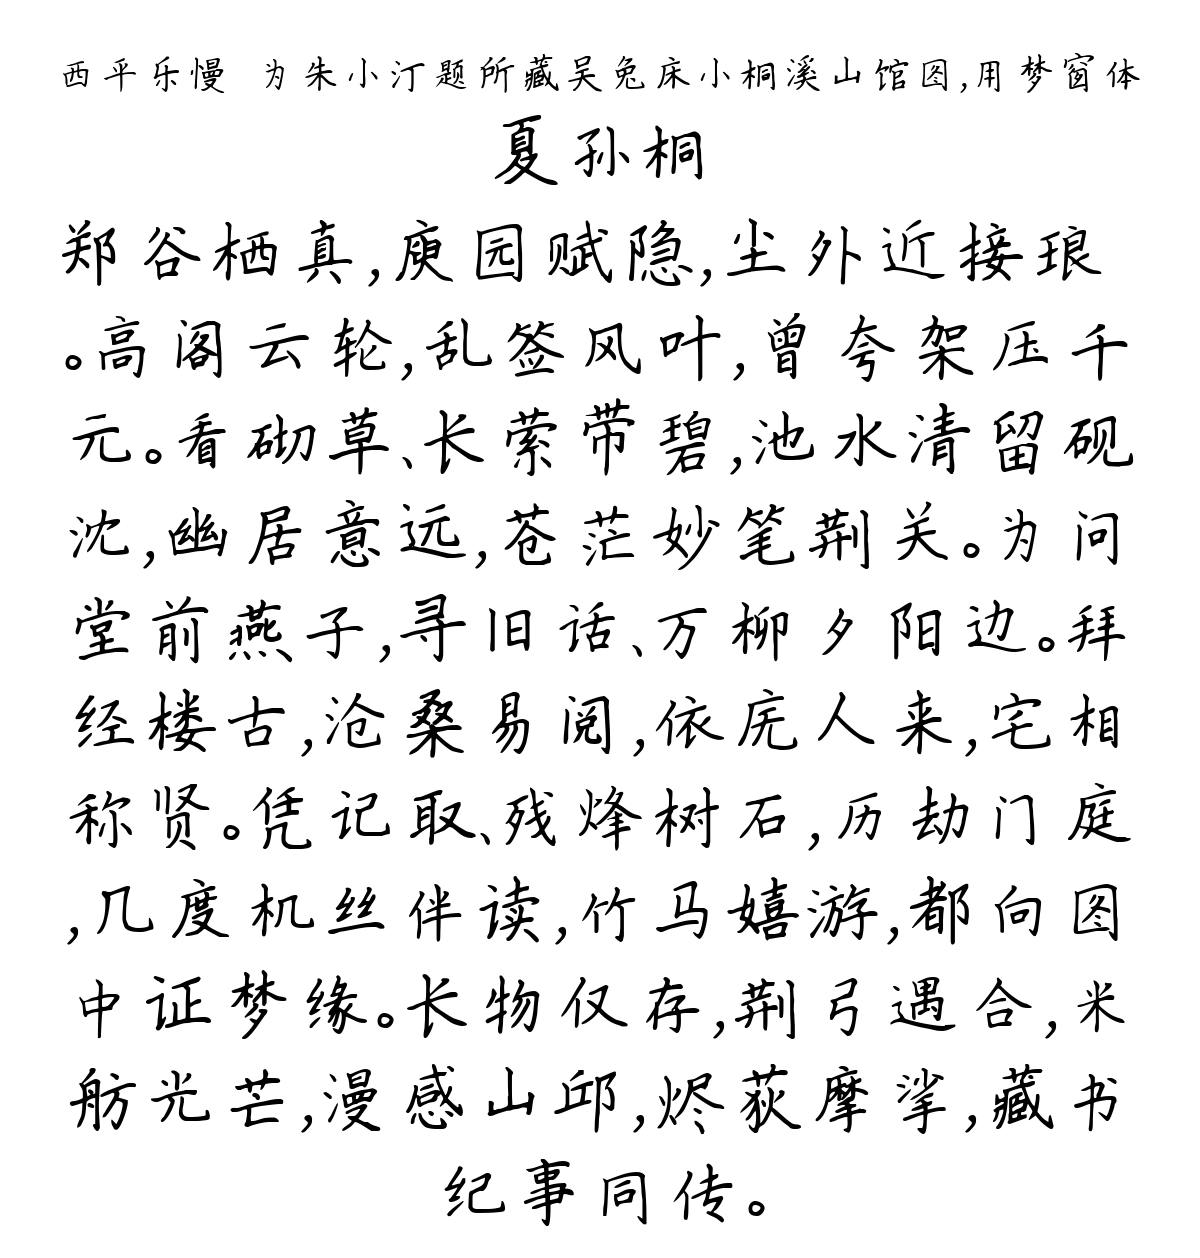 西平乐慢 为朱小汀题所藏吴兔床小桐溪山馆图,用梦窗体
夏孙桐
郑谷栖真,庾园赋隐,尘外近接琅
。高阁云轮,乱签风叶,曾夸架压千
元。看砌草、长萦带碧,池水清留砚
沈,幽居意远,苍茫妙笔荆关。为问
堂前燕子,寻旧话、万柳夕阳边。拜
经楼古,沧桑易阅,依庑人来,宅相
称贤。凭记取、残烽树石,历劫门庭
,几度机丝伴读,竹马嬉游,都向图
中证梦缘。长物仅存,荆弓遇合,米
舫光芒,漫感山邱,烬荻摩挲,藏书
纪事同传。